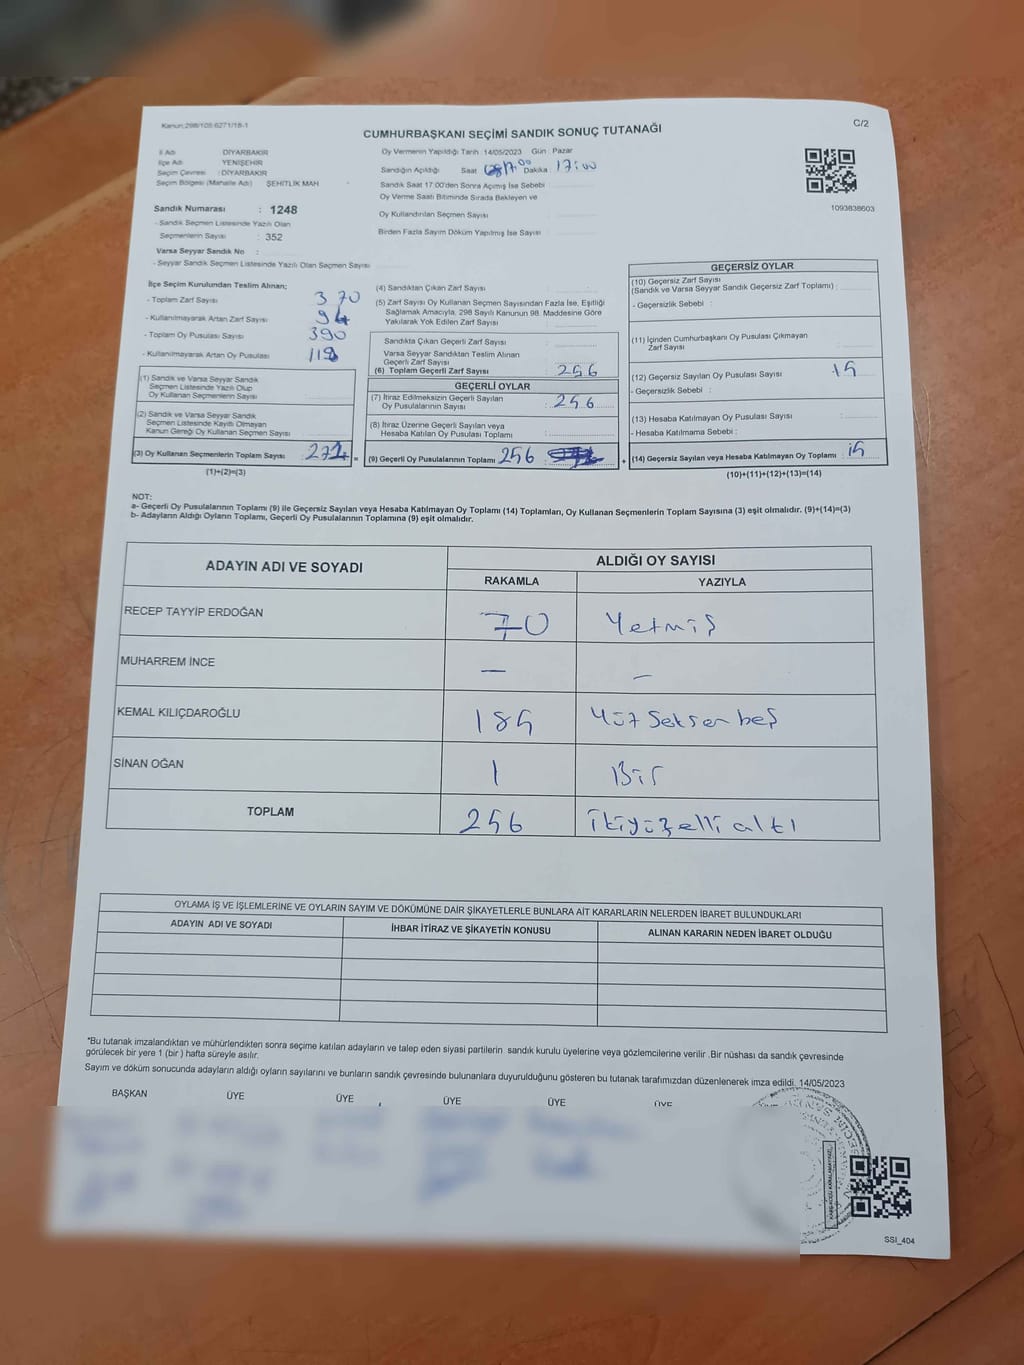 Kanun:298/105;6271/18-1
C/2
CUMHURBAŞKANI SEÇİMİ SANDIK SONUÇ TUTANAĞI
İl Adı : DİYARBAKIR
İlçe Adı : YENİŞEHİR
Seçim Çevresi : DİYARBAKIR
Seçim Bölgesi (Mahalle Adı) : ŞEHİTLİK MAH
Sandık Numarası : 1248
- Sandık Seçmen Listesinde Yazılı Olan
Seçmenlerin Sayısı : 352
Varsa Seyyar Sandık No :
- Seyyar Sandık Seçmen Listesinde Yazılı Olan Seçmen Sayısı :
Oy Vermenin Yapıldığı Tarih : 14/05/2023 Gün : Pazar
Sandığın Açıldığı Saat Dakika : 17:00
Sandık Saat 17:00'den Sonra Açılmış İse Sebebi :
Oy Verme Saati Bitiminde Sırada Bekleyen ve
Oy Kullandırılan Seçmen Sayısı :
Birden Fazla Sayım Döküm Yapılmış İse Sayısı :
1093838603
İlçe Seçim Kurulundan Teslim Alınan;
- Toplam Zarf Sayısı : 370
- Kullanılmayarak Artan Zarf Sayısı : 94
- Toplam Oy Pusulası Sayısı : 390
- Kullanılmayarak Artan Oy Pusulası : 118
(1) Sandık ve Varsa Seyyar Sandık
Seçmen Listesinde Yazılı Olup
Oy Kullanan Seçmenlerin Sayısı :
(2) Sandık ve Varsa Seyyar Sandık
Seçmen Listesinde Kayıtlı Olmayan
Kanun Gereği Oy Kullanan Seçmen Sayısı :
(3) Oy Kullanan Seçmenlerin Toplam Sayısı : 271 =
(1)+(2)=(3)
(4) Sandıktan Çıkan Zarf Sayısı :
(5) Zarf Sayısı Oy Kullanan Seçmen Sayısından Fazla İse, Eşitliği
Sağlamak Amacıyla, 298 Sayılı Kanunun 98. Maddesine Göre
Yakılarak Yok Edilen Zarf Sayısı :
Sandıkta Çıkan Geçerli Zarf Sayısı :
Varsa Seyyar Sandıktan Teslim Alınan
Geçerli Zarf Sayısı :
(6) Toplam Geçerli Zarf Sayısı : 256
GEÇERLİ OYLAR
(7) İtiraz Edilmeksizin Geçerli Sayılan
Oy Pusulalarının Sayısı : 256
(8) İtiraz Üzerine Geçerli Sayılan veya
Hesaba Katılan Oy Pusulası Toplamı :
(9) Geçerli Oy Pusulalarının Toplamı 256 : +
GEÇERSİZ OYLAR
(10) Geçersiz Zarf Sayısı
(Sandık ve Varsa Seyyar Sandık Geçersiz Zarf Toplamı) :
- Geçersizlik Sebebi :
(11) İçinden Cumhurbaşkanı Oy Pusulası Çıkmayan
Zarf Sayısı :
(12) Geçersiz Sayılan Oy Pusulası Sayısı : 15
- Geçersizlik Sebebi :
(13) Hesaba Katılmayan Oy Pusulası Sayısı :
- Hesaba Katılmama Sebebi :
(14) Geçersiz Sayılan veya Hesaba Katılmayan Oy Toplamı : 15
(10)+(11)+(12)+(13)=(14)
NOT:
a- Geçerli Oy Pusulalarının Toplamı (9) ile Geçersiz Sayılan veya Hesaba Katılmayan Oy Toplamı (14) Toplamları, Oy Kullanan Seçmenlerin Toplam Sayısına (3) eşit olmalıdır. (9)+(14)=(3)
b- Adayların Aldığı Oyların Toplamı, Geçerli Oy Pusulalarının Toplamına (9) eşit olmalıdır.
ADAYIN ADI VE SOYADI ALDIĞI OY SAYISI
RAKAMLA YAZIYLA
RECEP TAYYİP ERDOĞAN 70 Yetmiş
MUHARREM İNCE — —
KEMAL KILIÇDAROĞLU 185 Yüz Seksen beş
SİNAN OĞAN 1 Bir
TOPLAM 256 ikiyüzelli altı
OYLAMA İŞ VE İŞLEMLERİNE VE OYLARIN SAYIM VE DÖKÜMÜNE DAİR ŞİKAYETLERLE BUNLARA AİT KARARLARIN NELERDEN İBARET BULUNDUKLARI
ADAYIN ADI VE SOYADI İHBAR İTİRAZ VE ŞİKAYETİN KONUSU ALINAN KARARIN NEDEN İBARET OLDUĞU
*Bu tutanak imzalandıktan ve mühürlendikten sonra seçime katılan adayların ve talep eden siyasi partilerin sandık kurulu üyelerine veya gözlemcilerine verilir .Bir nüshası da sandık çevresinde
görülecek bir yere 1 (bir ) hafta süreyle asılır.
Sayım ve döküm sonucunda adayların aldığı oyların sayılarını ve bunların sandık çevresinde bulunanlara duyurulduğunu gösteren bu tutanak tarafımızdan düzenlenerek imza edildi. 14/05/2023
BAŞKAN ÜYE ÜYE ÜYE ÜYE ÜYE
SSI_404